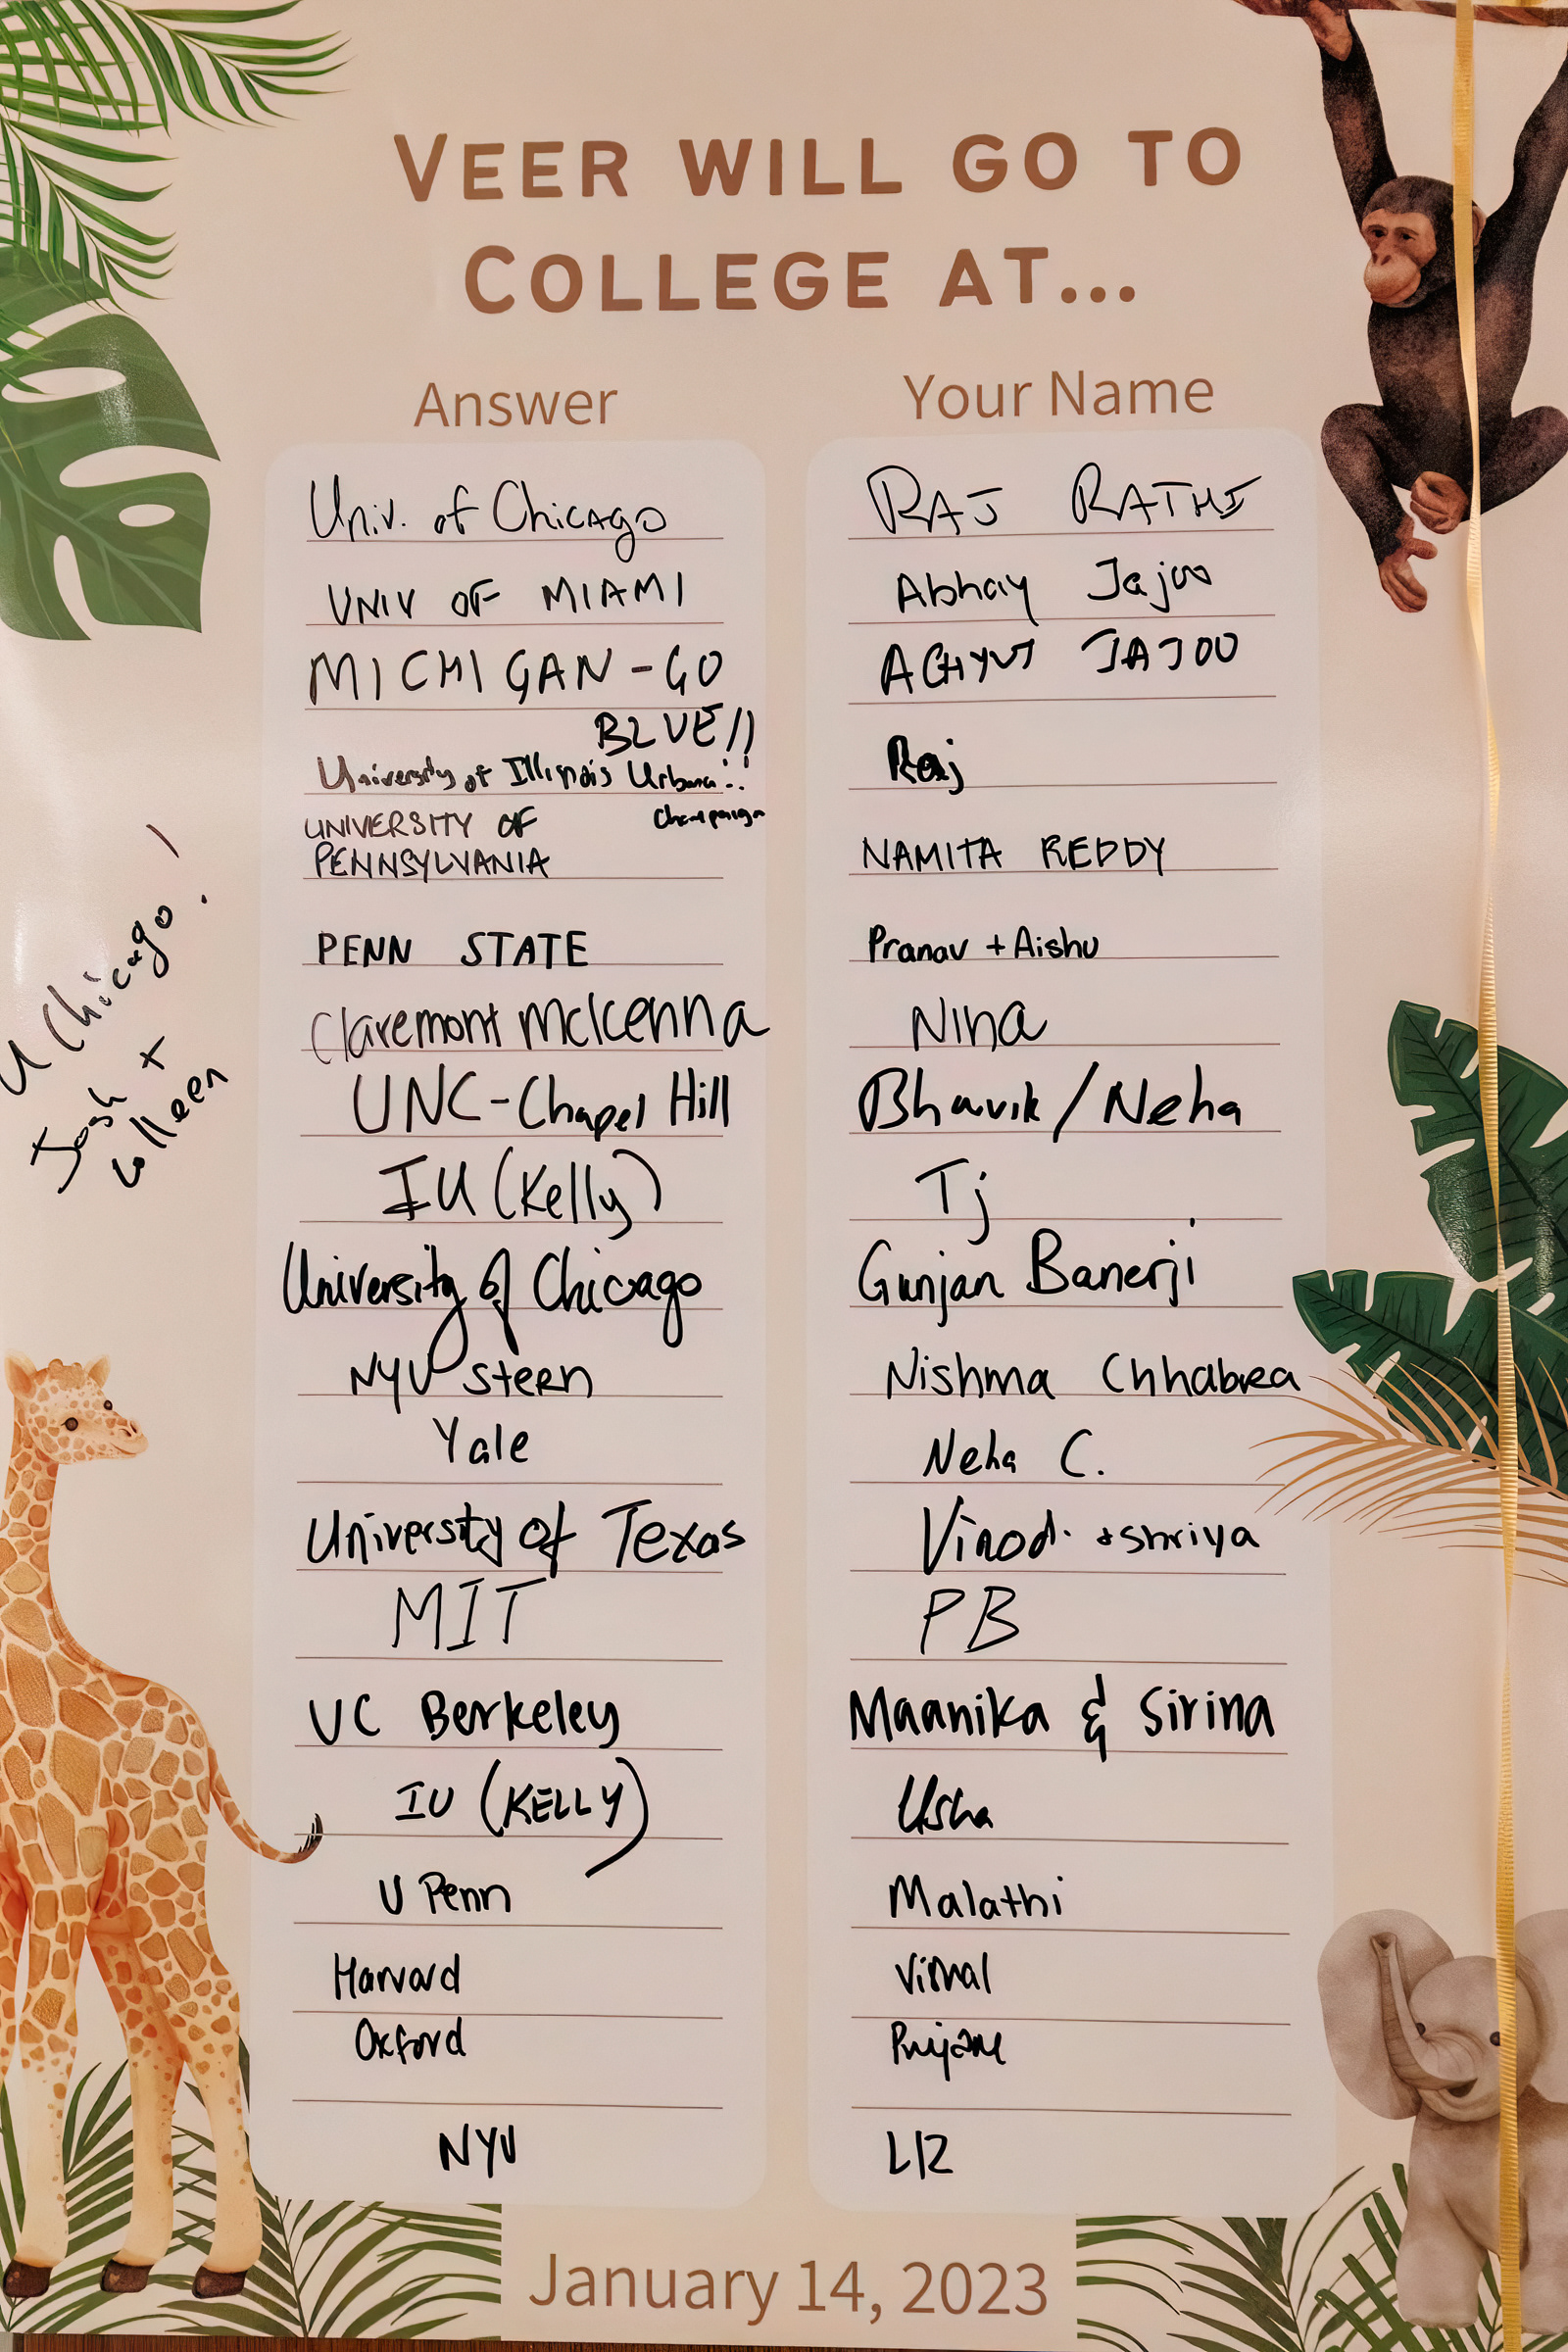 VEER WILL GO TO
COLLEGE AT...
Answer Your Name
Univ. of Chicago RAJ RATHI
UNIV OF MIAMI Abhay Jajoo
MICHIGAN - GO ACHYUT JAJOO
BLUE!!
University of Illinois Urbana Raj
Champaign
UNIVERSITY OF
PENNSYLVANIA NAMITA REDDY
PENN STATE Pranav + Aishu
Claremont McKenna Nina
UNC - Chapel Hill Bhavik / Neha
IU (Kelly) Tj
University of Chicago Gunjan Banerji
NYU Stern Nishma Chhabra
Yale Neha C.
University of Texas Vinod + Shriya
MIT PB
UC Berkeley Maanika & Sirina
IU (KELLY) Usha
U Penn Malathi
Harvard Vishal
Oxford
NYU LIZ
U Chicago!
Josh +
Colleen
January 14, 2023